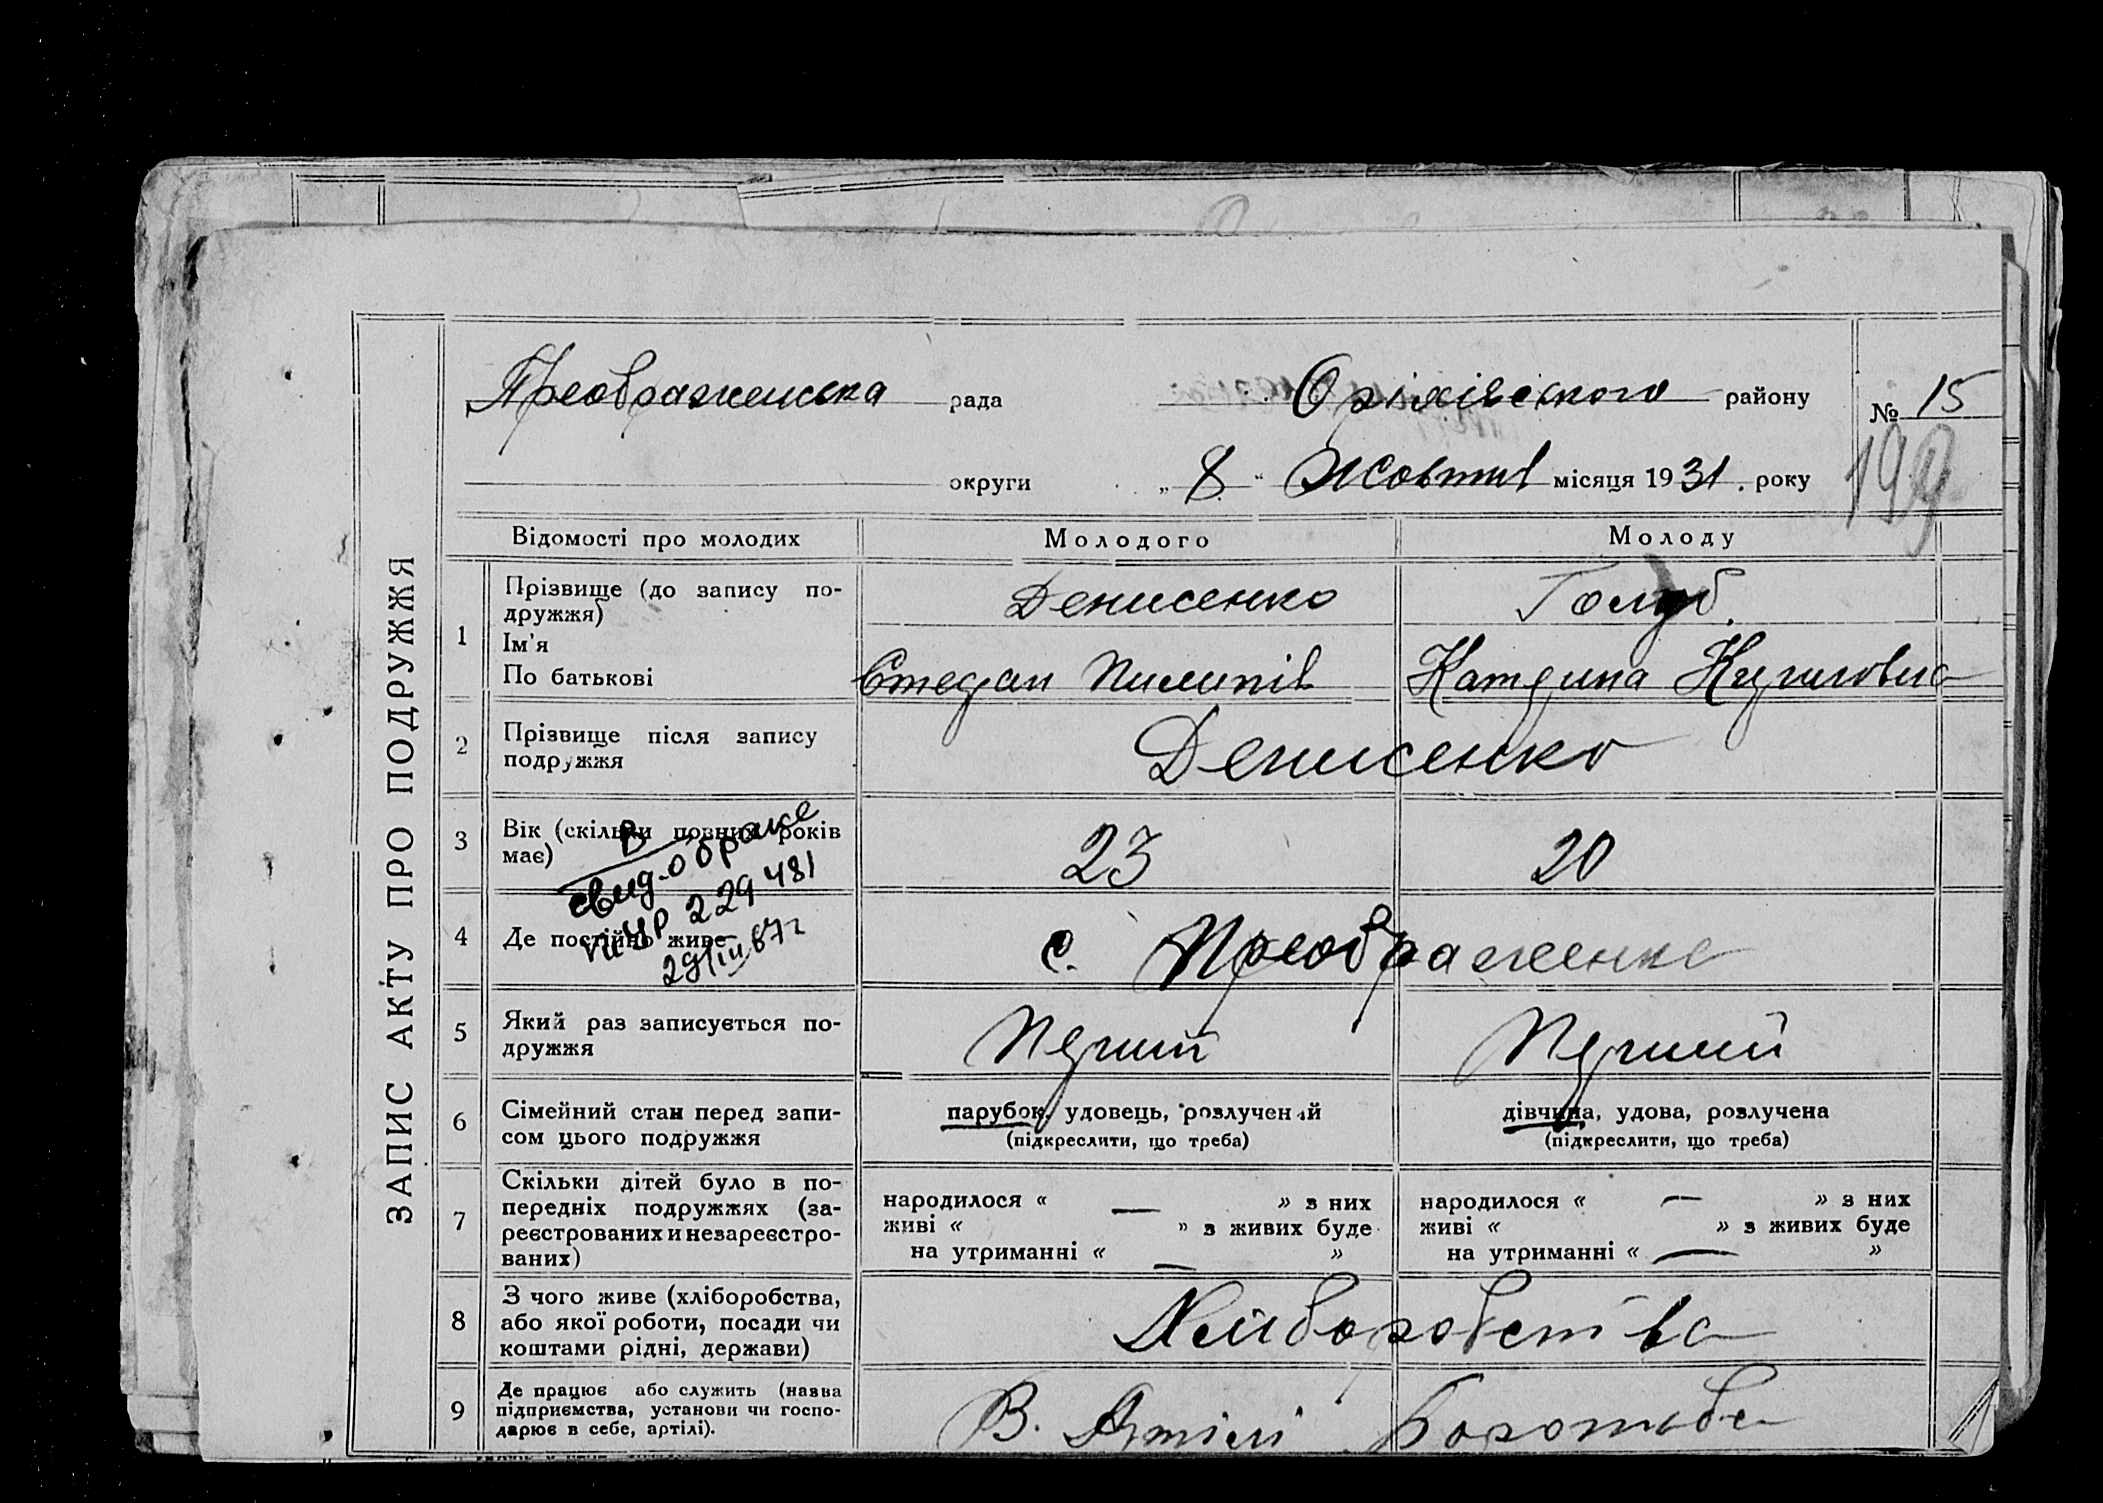 ЗАПИС АКТУ ПРО ПОДРУЖЖЯ
Преображенська рада Оріхівського району № 15
округи „ 8 “ Жовтня місяця 1931. року 199
Відомості про молодих Молодого Молоду
1 Прізвище (до запису по-
дружжя) Денисенко Голуб
Ім'я
По батькові Степан Пилипів Катрина
2 Прізвище після запису
подружжя Денисенко
3 Вік (скільки повних років
має) 23 20
В
свид-о браке
УР 229481
29/III 67г
4 Де постійно живе с. Преображенка
5 Який раз записується по-
дружжя Перший Перший
6 Сімейний стан перед запи-
сом цього подружжя
парубок, удовець, розлучений
(підкреслити, що треба)
дівчина, удова, розлучена
(підкреслити, що треба)
7 Скільки дітей було в по-
передніх подружжях (за-
реєстрованих и незареєстро-
ваних)
народилося « — » з них
живі « » з живих буде
на утриманні « — »
народилося « — » з них
живі « » з живих буде
на утриманні « — »
8 З чого живе (хліборобства,
або якої роботи, посади чи
коштами рідні, держави) Хліборобства
9 Де працює або служить (назва
підприємства, установи чи госпо-
дарює в себе, артілі). В. Артілі Боротьба